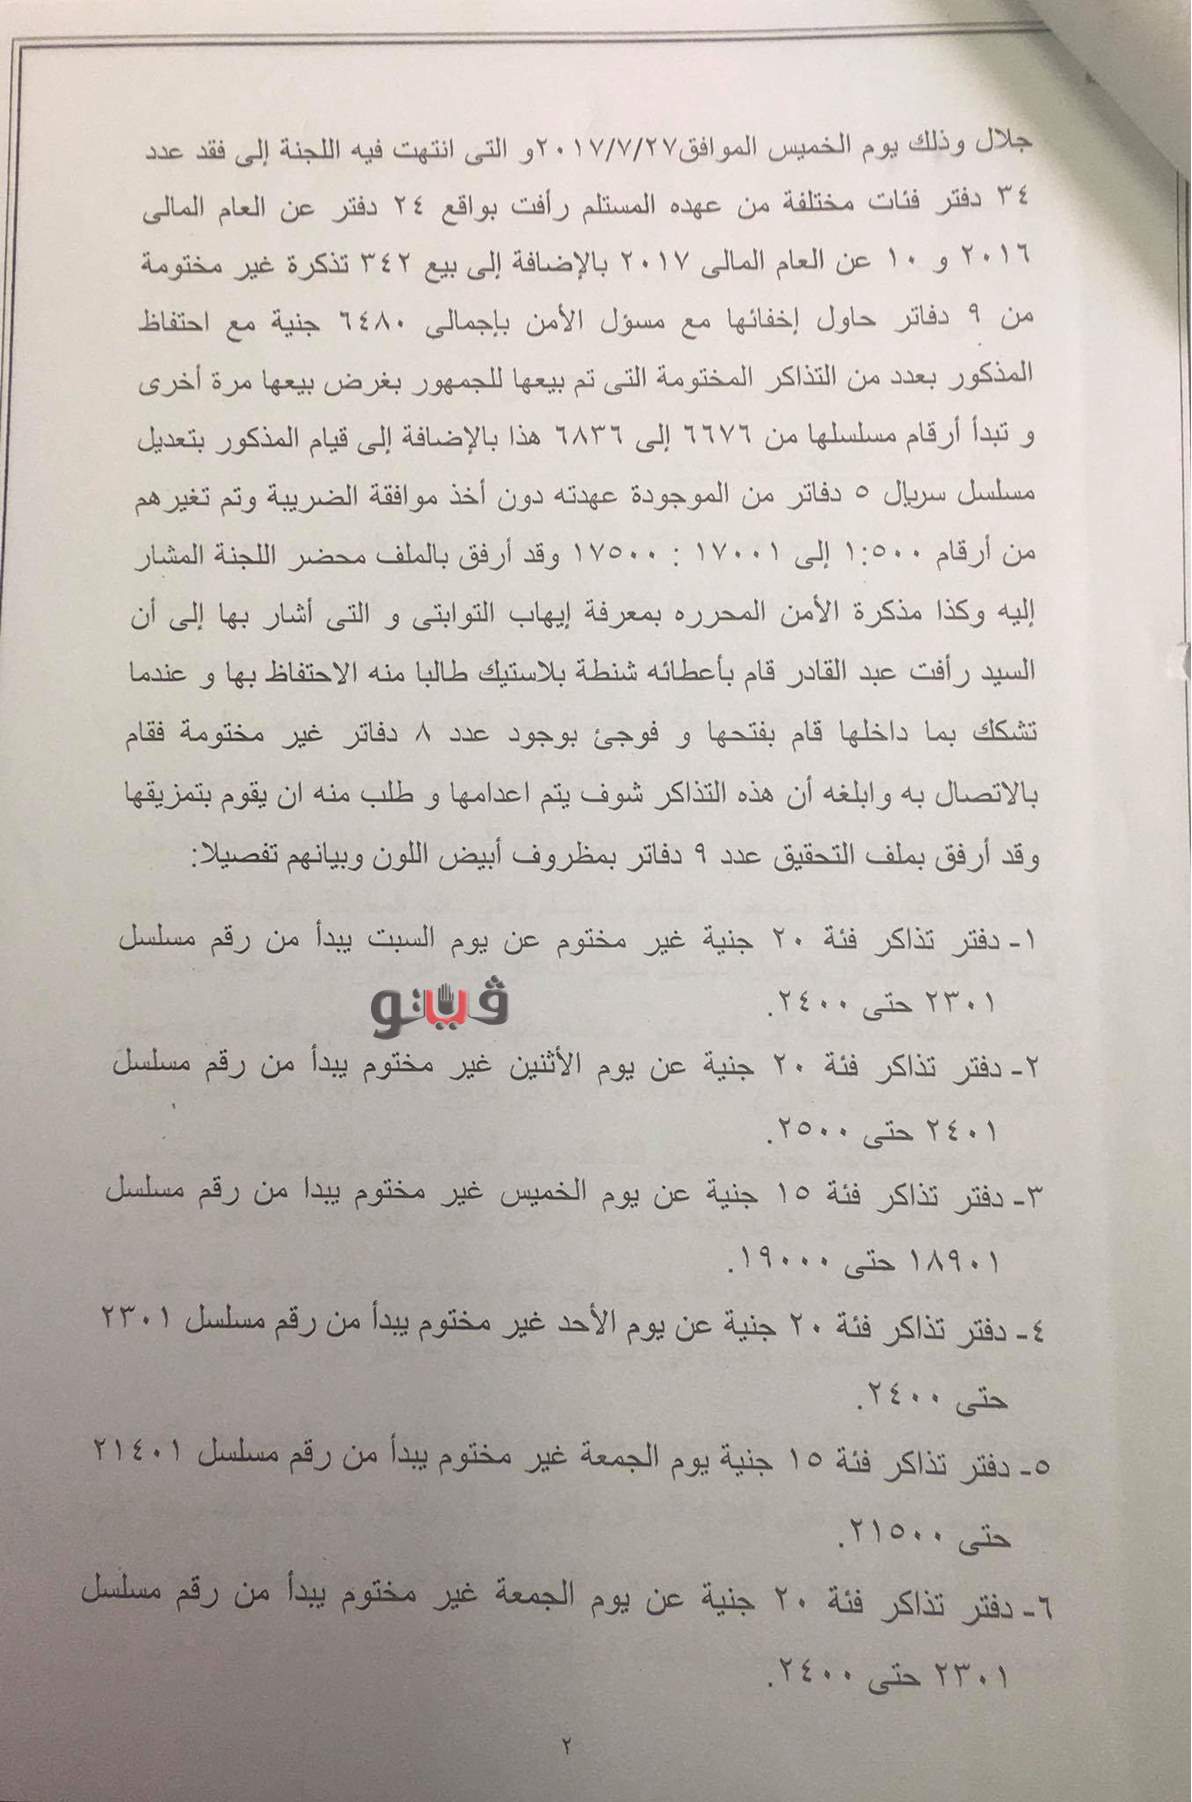 جلال وذلك يوم الخميس الموافق٢٠١٧/٧/٢٧و التى انتهت فيه اللجنة إلى فقد عدد
٣٤ دفتر فئات مختلفة من عهده المستلم رأفت بواقع ٢٤ دفتر عن العام المالى
٢٠١٦ و ١٠ عن العام المالى ٢٠١٧ بالإضافة إلى بيع ٣٤٢ تذكرة غير مختومة
من ٩ دفاتر حاول إخفائها مع مسؤل الأمن بإجمالى ٦٤٨٠ جنية مع احتفاظ
المذكور بعدد من التذاكر المختومة التى تم بيعها للجمهور بغرض بيعها مرة أخرى
و تبدأ أرقام مسلسلها من ٦٦٧٦ إلى ٦٨٣٦ هذا بالإضافة إلى قيام المذكور بتعديل
مسلسل سريال ٥ دفاتر من الموجودة عهدته دون أخذ موافقة الضريبة وتم تغيرهم
من أرقام ١:٥٠٠ إلى ١٧٠٠١ : ١٧٥٠٠ وقد أرفق بالملف محضر اللجنة المشار
إليه وكذا مذكرة الأمن المحرره بمعرفة إيهاب التوابتى و التى أشار بها إلى أن
السيد رأفت عبد القادر قام بأعطائه شنطة بلاستيك طالبا منه الاحتفاظ بها و عندما
تشكك بما داخلها قام بفتحها و فوجئ بوجود عدد ٨ دفاتر غير مختومة فقام
بالاتصال به وابلغه أن هذه التذاكر شوف يتم اعدامها و طلب منه ان يقوم بتمزيقها
وقد أرفق بملف التحقيق عدد ٩ دفاتر بمظروف أبيض اللون وبيانهم تفصيلا:
١- دفتر تذاكر فئة ٢٠ جنية غير مختوم عن يوم السبت يبدأ من رقم مسلسل
٢٣٠١ حتى ٢٤٠٠.
ڤيتو
٢- دفتر تذاكر فئة ٢٠ جنية عن يوم الأثنين غير مختوم يبدأ من رقم مسلسل
٢٤٠١ حتى ٢٥٠٠.
٣- دفتر تذاكر فئة ١٥ جنية عن يوم الخميس غير مختوم يبدا من رقم مسلسل
١٨٩٠١ حتى ١٩٠٠٠.
٤- دفتر تذاكر فئة ٢٠ جنية عن يوم الأحد غير مختوم يبدأ من رقم مسلسل ٢٣٠١
حتى ٢٤٠٠.
٥- دفتر تذاكر فئة ١٥ جنية يوم الجمعة غير مختوم يبدأ من رقم مسلسل ٢١٤٠١
حتى ٢١٥٠٠.
٦- دفتر تذاكر فئة ٢٠ جنية عن يوم الجمعة غير مختوم يبدأ من رقم مسلسل
٢٣٠١ حتى ٢٤٠٠.
٢